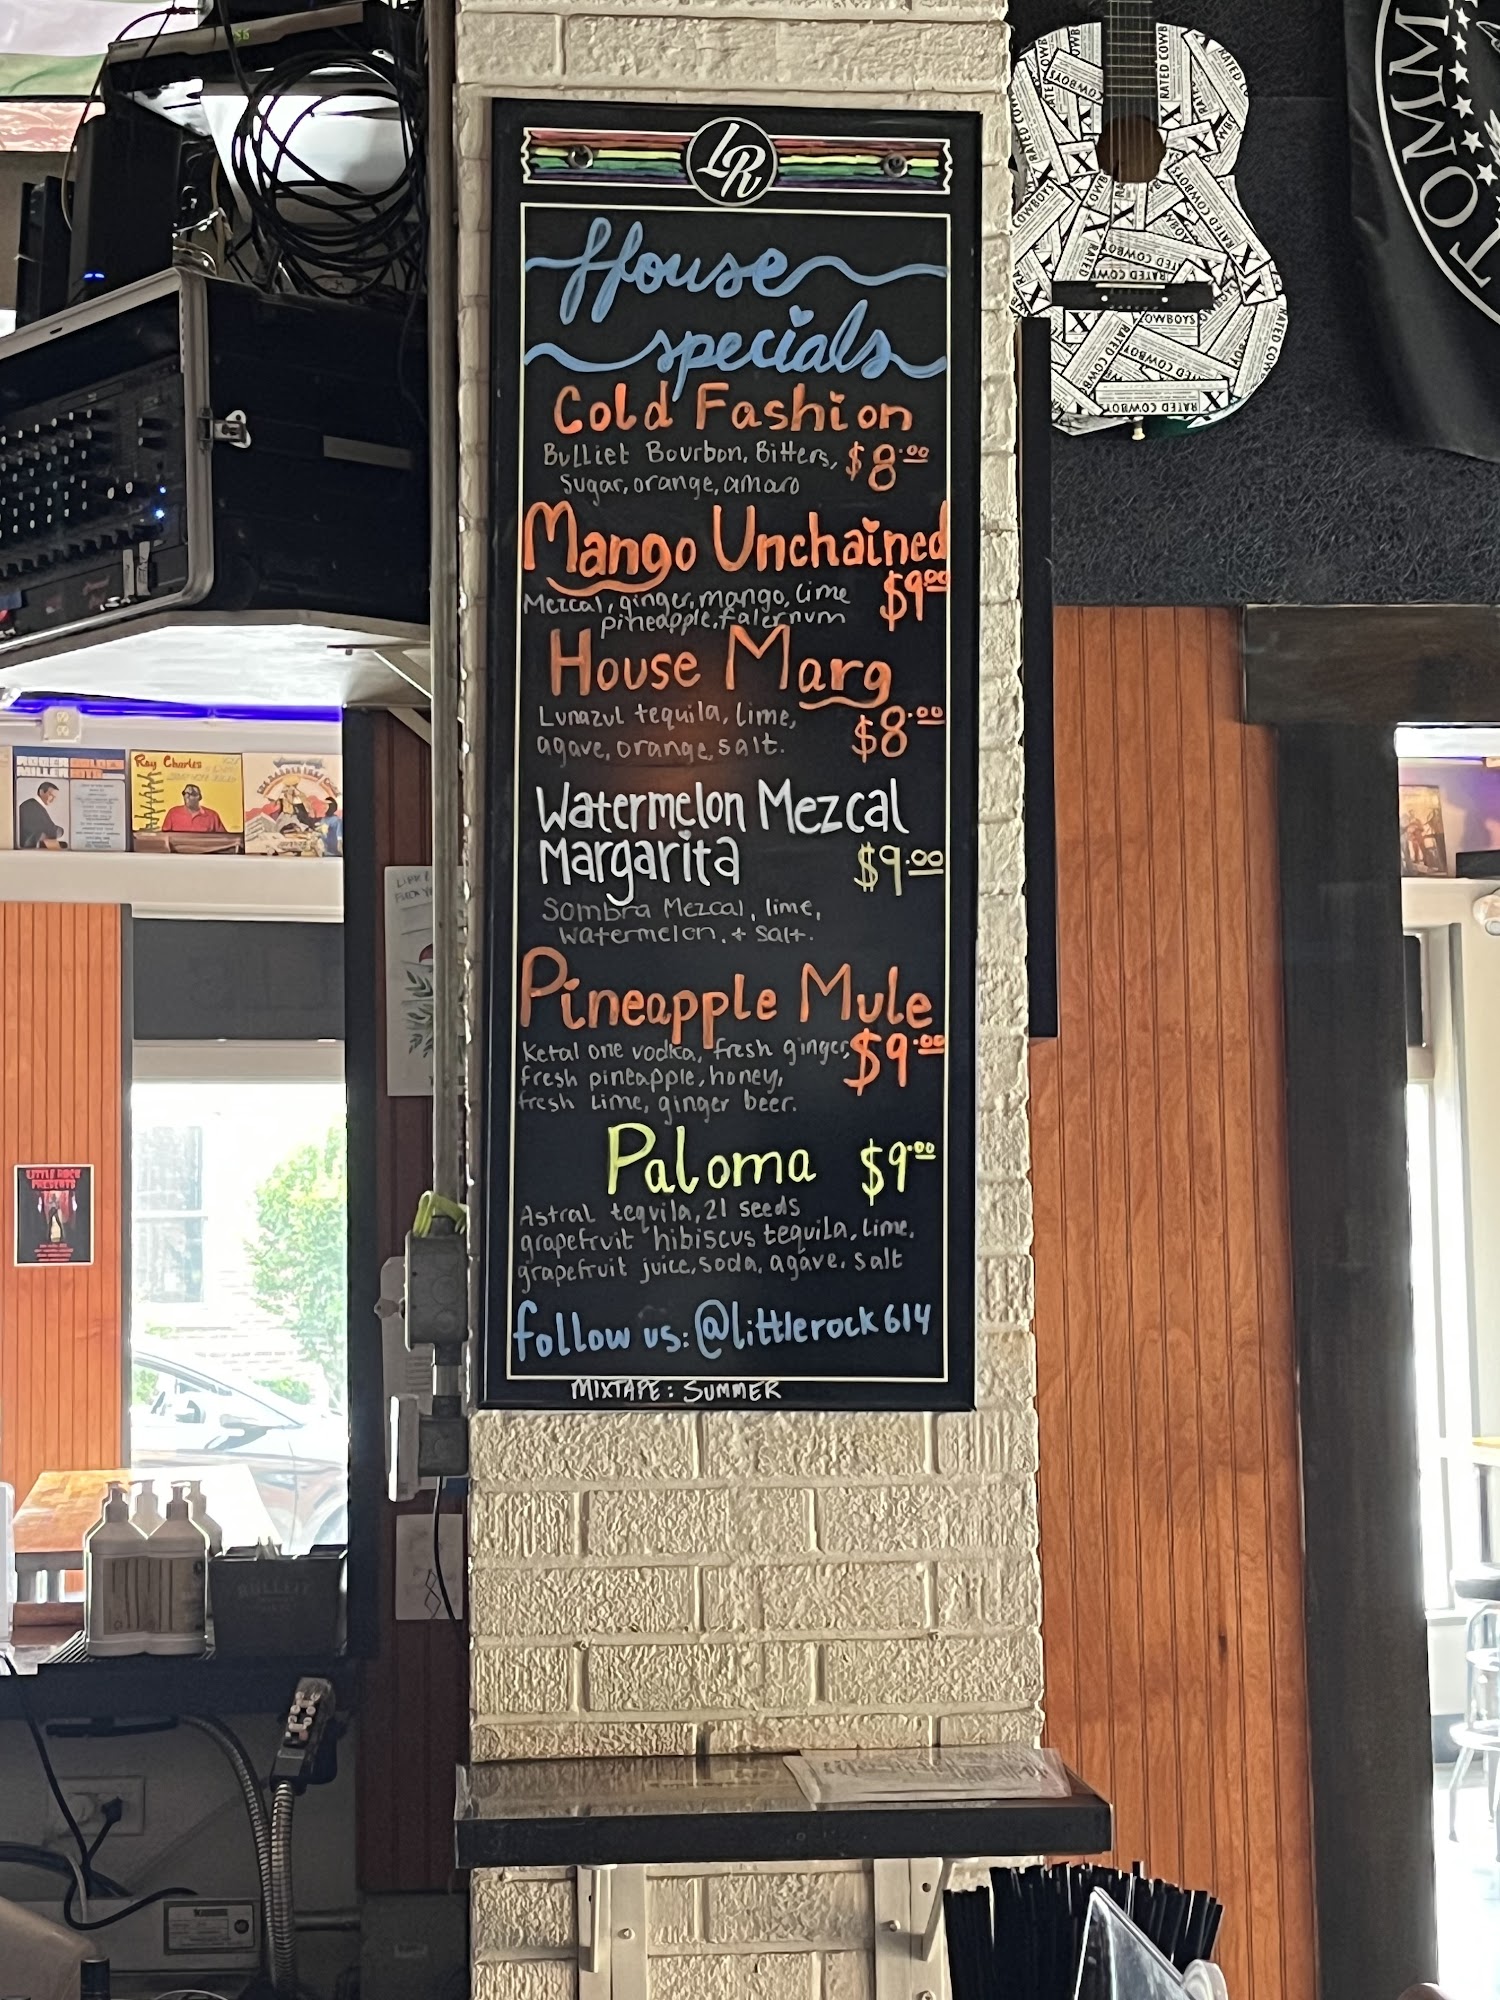 LR
House
specials
Cold Fashion
Bulliet Bourbon, Bitters,
sugar, orange, amaro
$8.00
Mango Unchained
$9.00
Mezcal, ginger, mango, lime
pineapple, falernum
House Marg
Lunazul tequila, lime,
agave, orange, salt.
$8.00
Watermelon Mezcal
Margarita
$9.00
Sombra Mezcal, lime,
watermelon, + salt.
Pineapple Mule
Ketal one vodka, fresh ginger,
$9.00
fresh pineapple, honey,
fresh lime, ginger beer.
Paloma $9.00
Astral tequila, 21 seeds
grapefruit hibiscus tequila, lime,
grapefruit juice, soda, agave, salt
follow us: @littlerock614
MIXTAPE: SUMMER
TOMM
RATED COWBOYS
X
Ray Charles
ROGER
MILLER
LITTLE ROCK
PRESENTS
BULLEIT